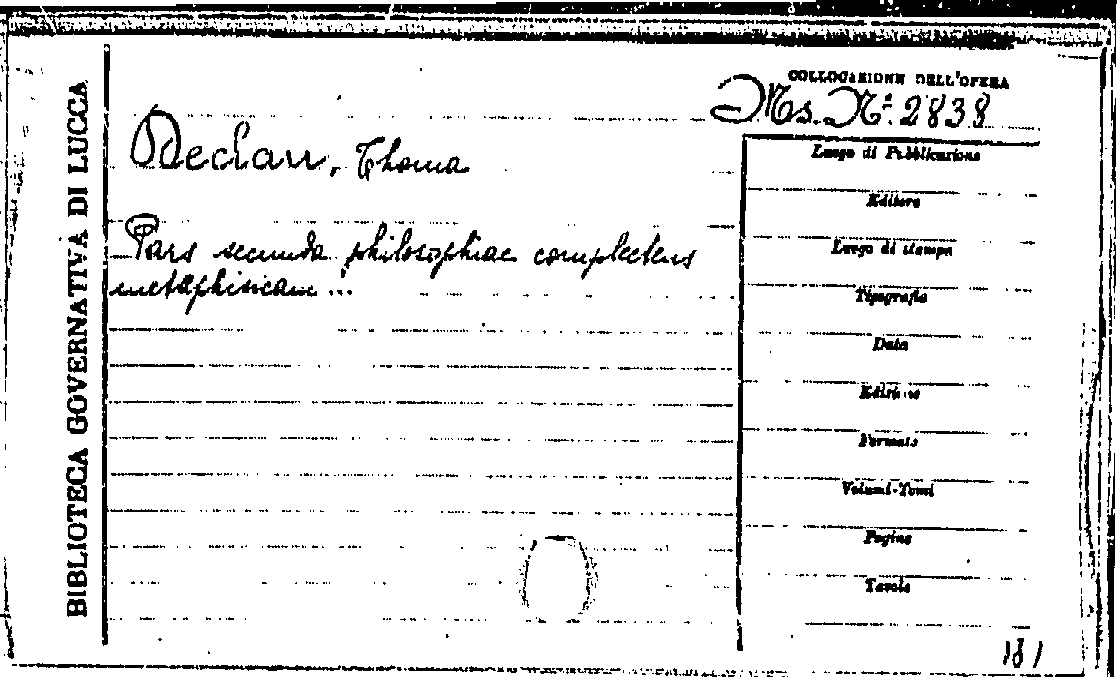 BIBLIOTECA GOVERNATIVA DI LUCCA
COLLOCAZIONE DELL'OPERA
Ms. N° 2838
Thoma
Pars secunda philosophiae complectens
metaphisicam ...
Luogo di Pubblicazione
Editore
Luogo di stampa
Tipografia
Data
Edizione
Formato
Volumi-Tomi
Pagine
Tavole